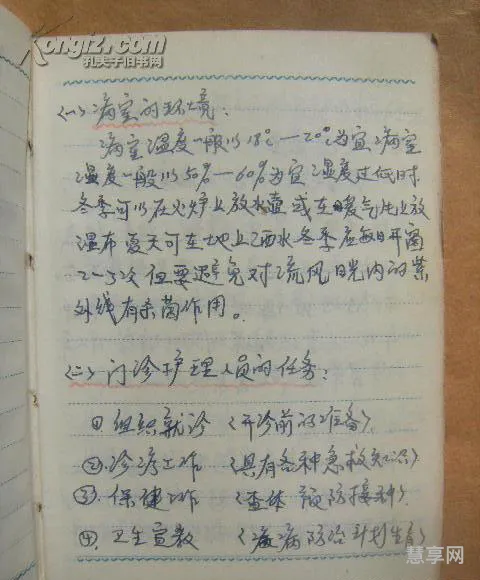 kongfz.com
孔夫子旧书网
<一>病室的环境:
病室温度一般以18℃—20℃为宜 病室
湿度一般以50%—60%为宜 湿度过低时
冬季可以在火炉上放水壶或在暖气片上放
湿布 夏天可在地上洒水 冬季应每日开窗
2—3次 但要避免对流风 日光内的紫
外线有杀菌作用。
<二>门诊护理人员的任务:
①组织就诊 (开诊前的准备).
②.诊疗工作 (具有各种急救知识)
③.保健工作 (查体 预防接种).
④.卫生宣教 (疾病防治计划生育)
慧享网